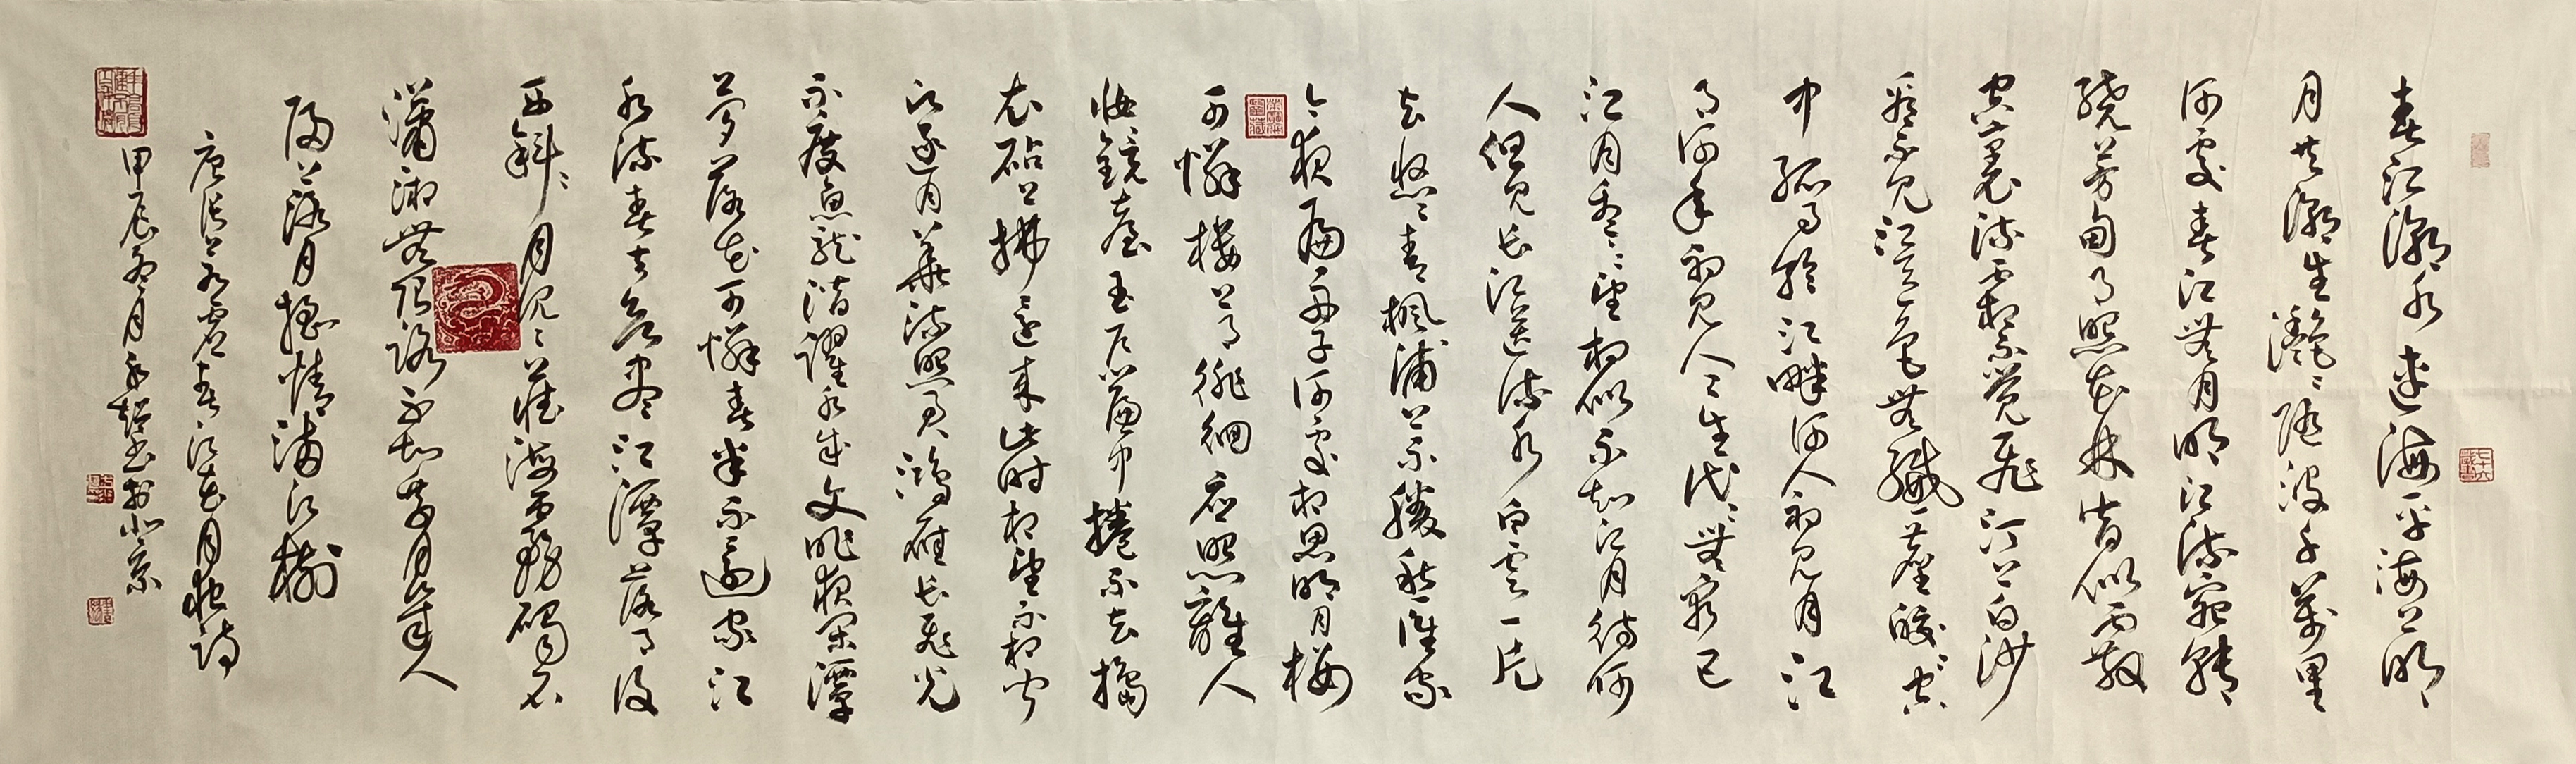 春江潮水連海平海上明
月共潮生灩灩隨波千萬里
何處春江無月明江流宛轉
繞芳甸月照花林皆似霰
空裏流霜不覺飛汀上白沙
看不見江天一色無纖塵皎皎空
中孤月輪江畔何人初見月江
月何年初見人人生代代無窮已
江月年年望相似不知江月待何
人但見長江送流水白雲一片
去悠悠青楓浦上不勝愁誰家
今夜扁舟子何處相思明月樓
可憐樓上月徘徊應照離人
妝鏡臺玉戶簾中捲不去擣
衣砧上拂還來此時相望不相聞
此逐月華流照君鴻雁長飛光
不度魚龍潛躍水成文昨夜閑潭
夢落花可憐春半不還家江
水流春去欲盡江潭落月復
西斜斜月沉沉藏海霧碣石
瀟湘無限路不知乘月幾人
歸落月搖情滿江樹
唐張若虛春江花月夜詩
甲辰冬月書於北京